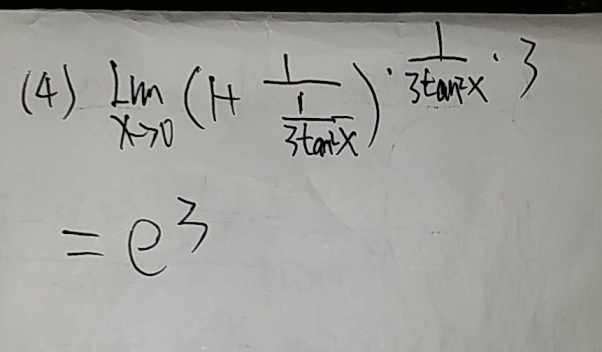 (4) \lim_{x \to 0} (1 + \frac{1}{\frac{1}{3\tan^2 x}})^{\cdot \frac{1}{3\tan^2 x} \cdot 3}
= e^3